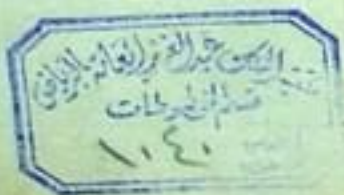 الملك عبد العزيز العامة بالرياض
قسم المخطوطات
١٠٤٠